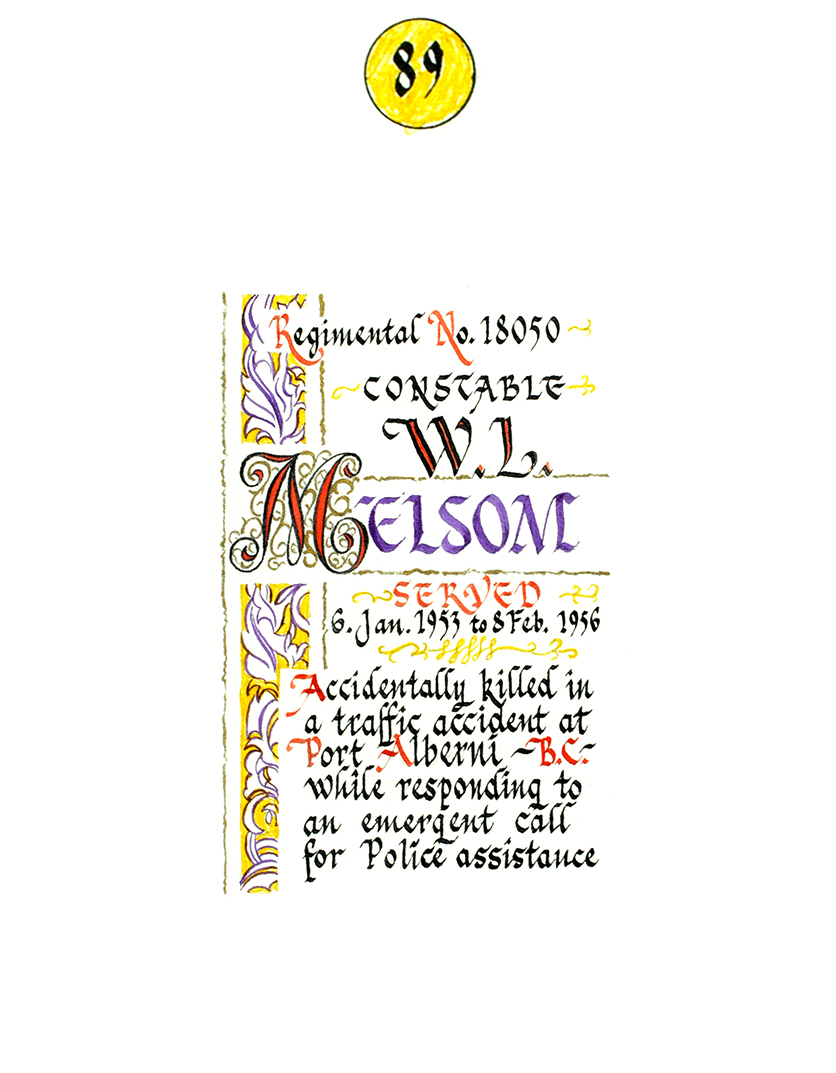 89
Regimental No. 18050
CONSTABLE
W. L.
MELSOM
SERVED
6. Jan. 1953 to 8 Feb. 1956
Accidentally killed in
a traffic accident at
Port Alberni - B.C. -
while responding to
an emergent call
for Police assistance